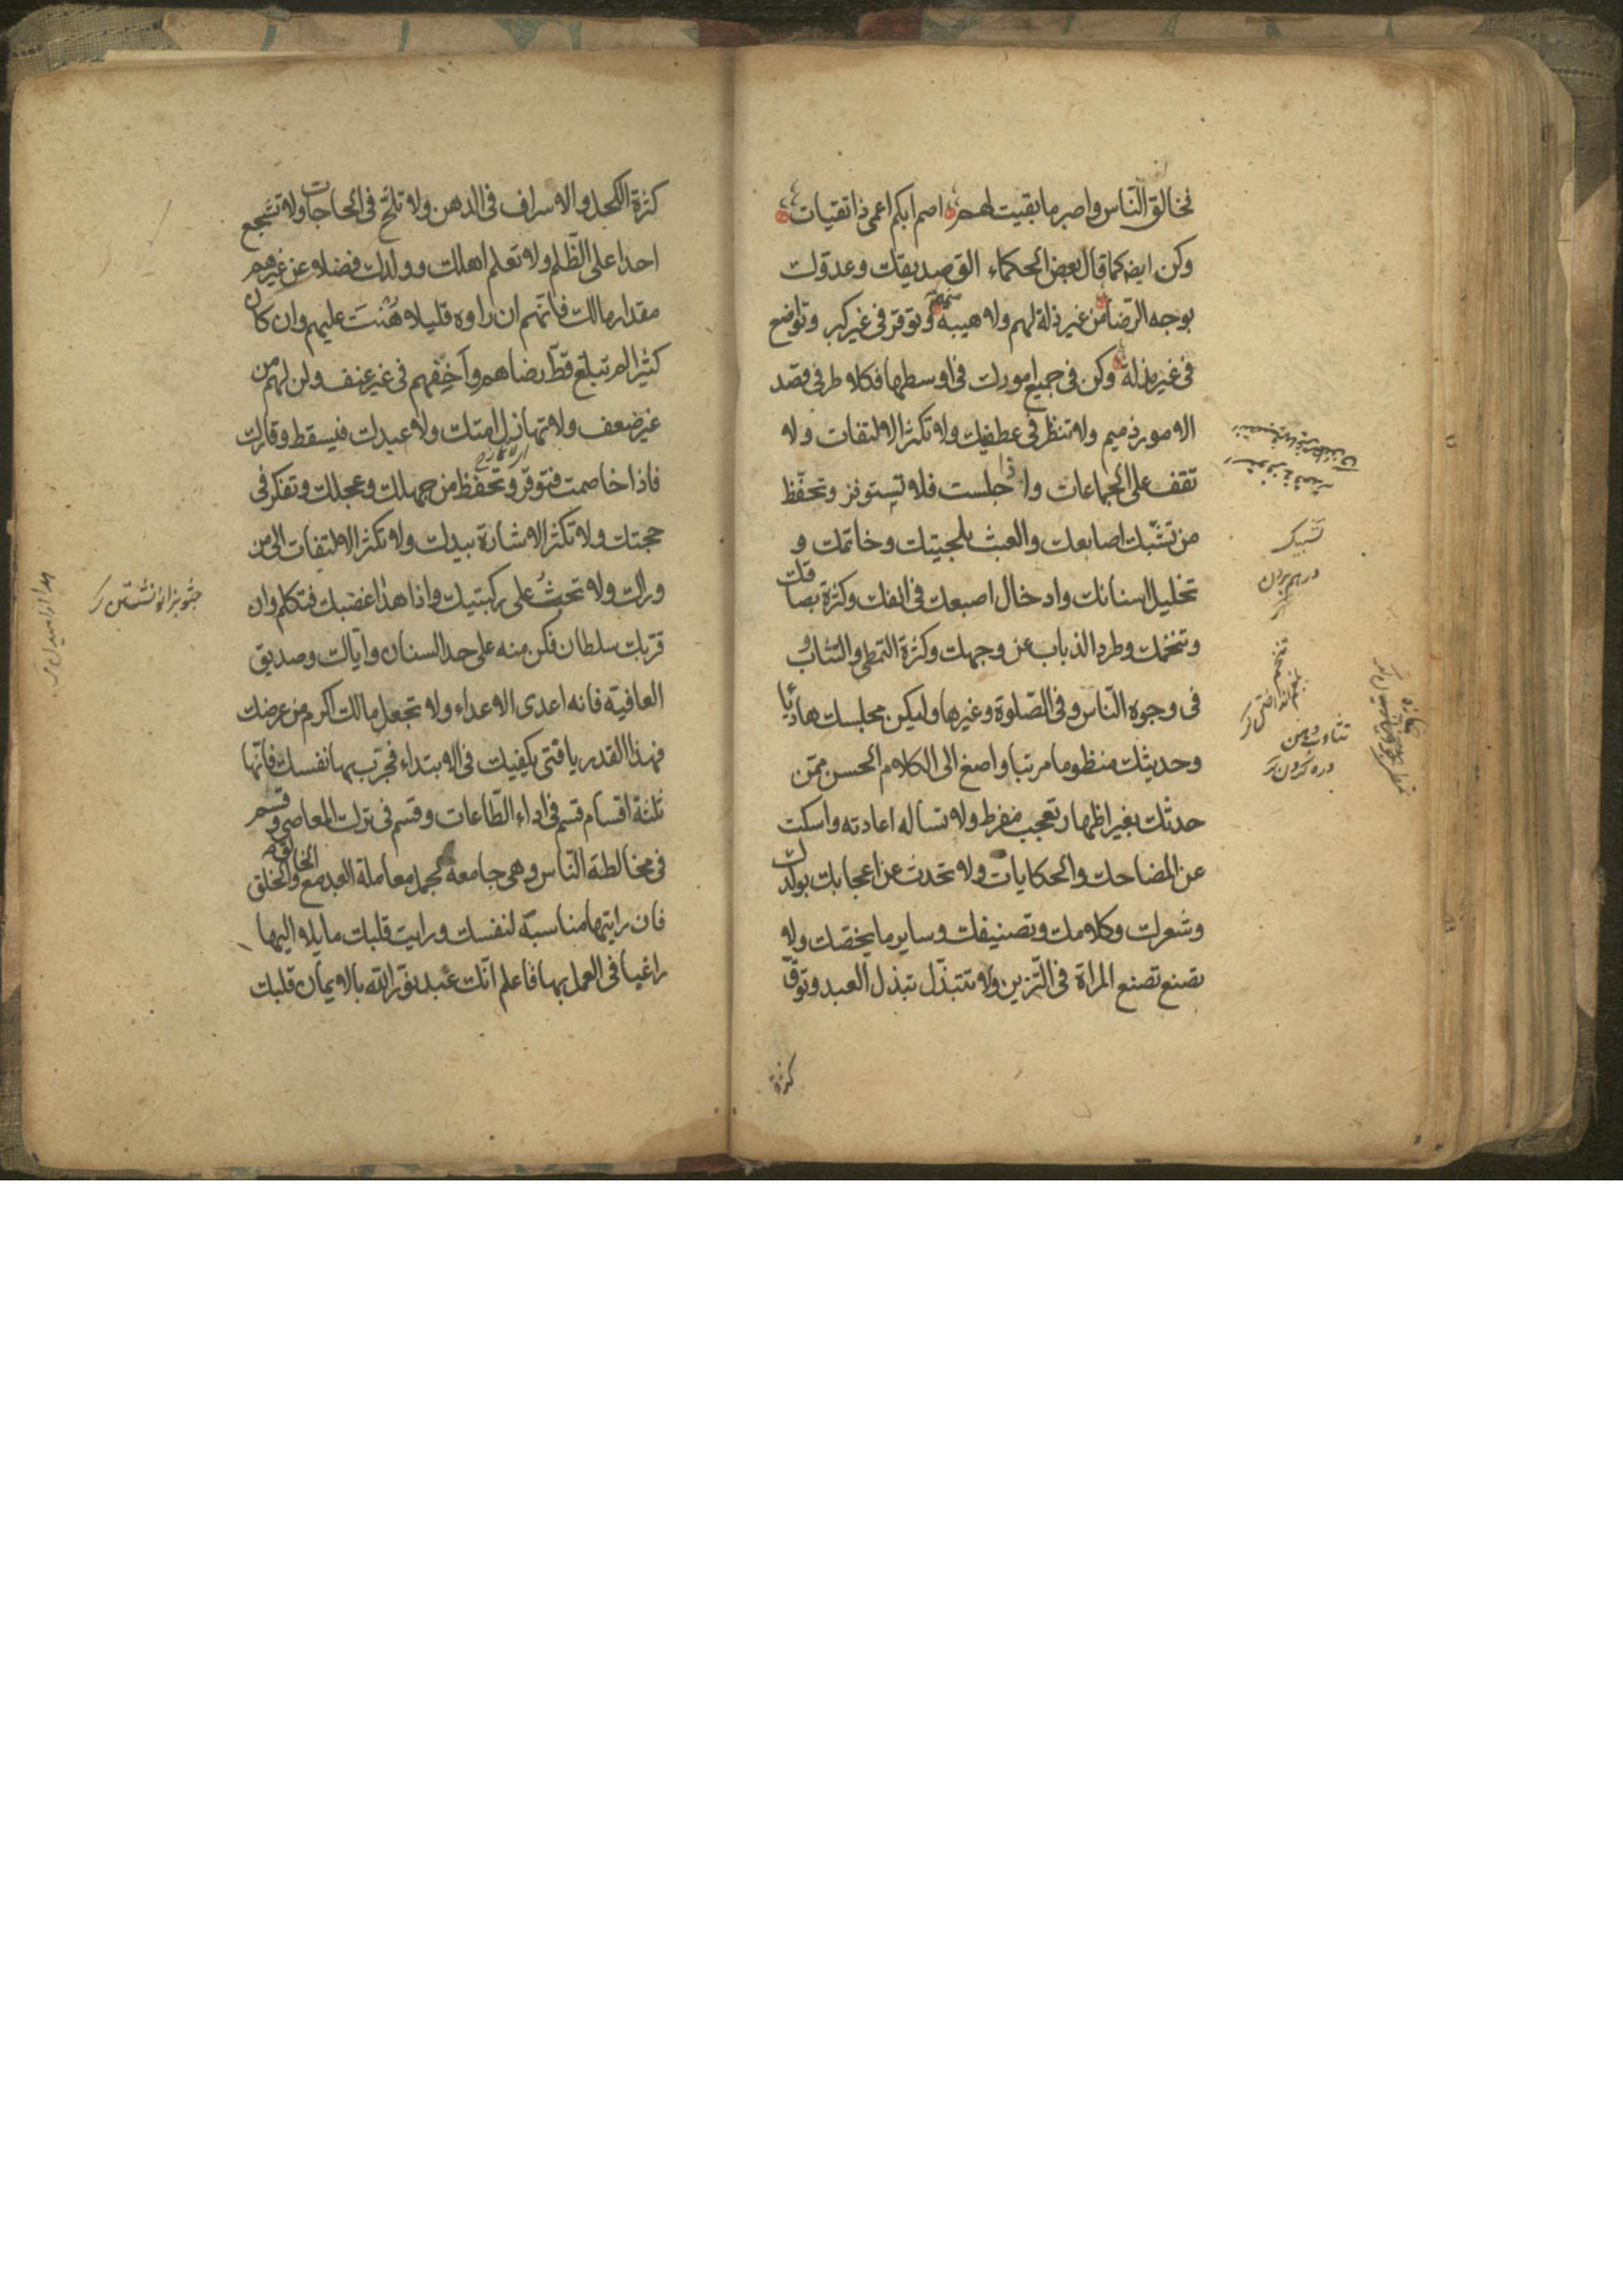 فخالق النّاس واصبر ما بقيت لهم اصم ابكم اعمى ذا تقيات
وكن ايضه كما قال بعض الحكماء الق صديقك وعدوّك
بوجه الرّضا من غير ذلة لهم ولا هيبة منهم وتوقّر فى غير كبر وتواضع
فى غير مذلة وكن فى جميع امورك فى اوسطها فكلا طرفى قصد
الامور ذميم ولا تنظر فى عطفيك ولا تكثر الالتفات ولا
تقف على الجماعات واذا جلست فلا تستوفز وتحفّظ
من تشبّك اصابعك والعبث بلحيتك وخاتمك و
تخليل اسنانك وادخال اصبعك فى انفك وكثرة بصاقك
وتنخمك وطرد الذباب عن وجهك وكثرة التمطى والتثاوب
فى وجوه النّاس وفى الصّلوة وغيرها وليكن مجلسك هاديا
وحديثك منظوما مرتبا واصغ الى الكلام الحسن ممّن
حدثك بغير اظهار تعجب مفرط ولا تساله اعادته واسكت
عن المضاحك والحكايات ولا تحدث عن اعجابك بولدك
وشعرك وكلامك وتصنيفك وساير ما يخصّك ولا
تصنع تصنع المراة فى التّزين ولا تتبذّل تبذل العبد وتوقّ
كثرة
تشبيك
در هم بردن
تنخم
تثاوب دهن
دره كردن
كثرة الكحل والاسراف فى الدهن ولا تلحّ فى الحاجات ولا تشجع
احدا على الظّلم ولا تعلم اهلك وولدك فضلا عن غيرهم
مقدار مالك فانّهم ان راوه قليلا هُنتَ عليهم وان كان
كثيرا لم تبلغ قطّ رضاهم واخِفهم فى غير عنف ولن لهم من
غير ضعف ولا تهازل امتك ولا عبدك فيسقط وقارك
فاذا خاصمت فتوقّر وتحفّظ من جهلك وعجلك وتفكر فى
حجتك ولا تكثر الاشارة بيدك ولا تكثر الالتفات الى من
وراك ولا تحثُ على ركبتيك واذا هدا غضبك فتكلم وان
قرّبك سلطان فكن منه على حد السنان واياك وصديق
العافية فانه اعدى الاعداء ولا تجعل مالك اكرم من عرضك
فهذا القدر يا فتى يكفيك فى الابتداء فجرّب بها نفسك فانّها
ثلثة اقسام قسم فى اداء الطّاعات وقسم فى ترك المعاصى وقسم
فى مخالطة النّاس وهى جامعة لجمل معاملة العبد مع الخالق والخلق
فان رايتها مناسبة لنفسك ورايت قلبك مايلا اليها
راغبا فى العمل بها فاعلم انّك عبد نوّر الله بالايمان قلبك
جثو بزانو نشستن